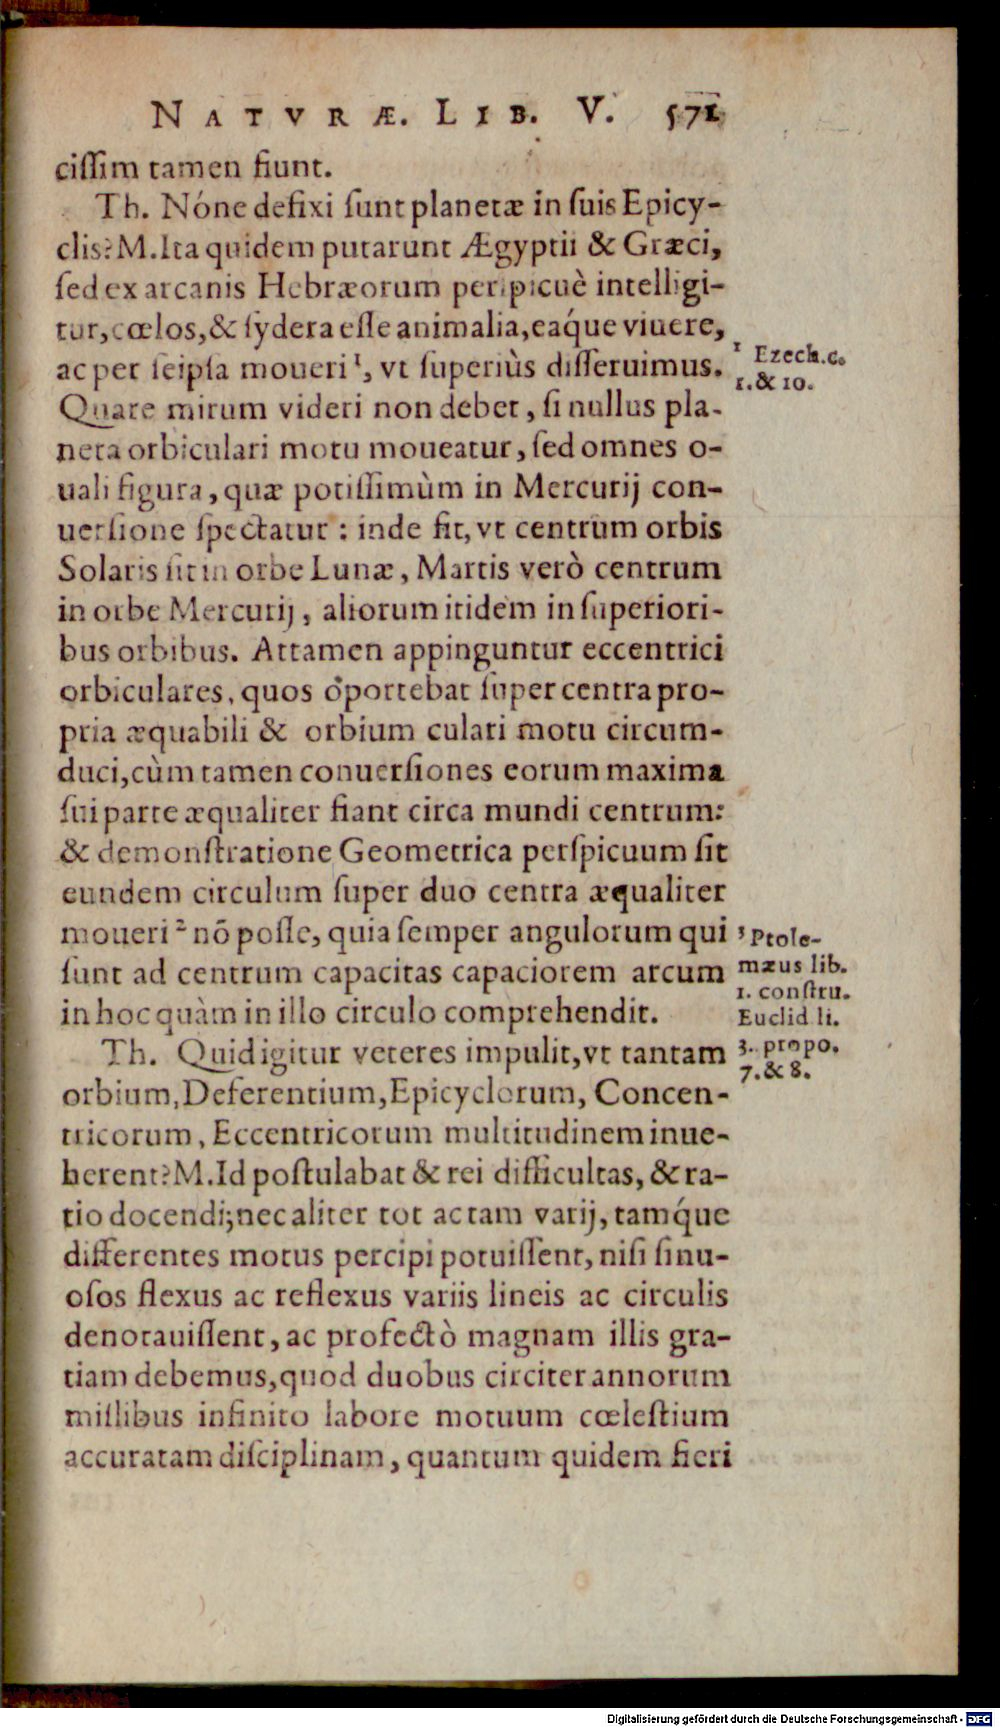 NATVRÆ. LIB. V. 571
ciſſim tamen fiunt.
Th. Nóne defixi ſunt planetæ in ſuis Epicy-
clis? M. Ita quidem putarunt Ægyptii & Græci,
ſed ex arcanis Hebræorum perſpicuè intelligi-
tur, cœlos, & ſydera eſſe animalia, eáque viuere,
ac per ſeipſa moueri¹, vt ſuperiùs diſſeruimus.
Quare mirum videri non debet, ſi nullus pla-
neta orbiculari motu moueatur, ſed omnes o-
uali figura, quæ potiſſimùm in Mercurij con-
uerſione ſpectatur : inde fit, vt centrum orbis
Solaris ſit in orbe Lunæ, Martis verò centrum
in orbe Mercurij, aliorum itidem in ſuperiori-
bus orbibus. Attamen appinguntur eccentrici
orbiculares, quos oportebat ſuper centra pro-
pria æquabili & orbium culari motu circum-
duci, cùm tamen conuerſiones eorum maxima
ſui parte æqualiter fiant circa mundi centrum:
& demonſtratione Geometrica perſpicuum ſit
eundem circulum ſuper duo centra æqualiter
moueri² nō poſſe, quia ſemper angulorum qui
ſunt ad centrum capacitas capaciorem arcum
in hoc quàm in illo circulo comprehendit.
Th. Quid igitur veteres impulit, vt tantam
orbium, Deferentium, Epicyclorum, Concen-
tricorum, Eccentricorum multitudinem inue-
herent? M. Id poſtulabat & rei difficultas, & ra-
tio docendi; nec aliter tot ac tam varij, tamq́ue
differentes motus percipi potuiſſent, niſi ſinu-
oſos flexus ac reflexus variis lineis ac circulis
denotauiſſent, ac profectò magnam illis gra-
tiam debemus, quod duobus circiter annorum
millibus infinito labore motuum cœleſtium
accuratam diſciplinam, quantum quidem fieri
¹ Ezech.c.
1.& 10.
³ Ptole-
mæus lib.
1. conſtru.
Euclid li.
3. propo.
7.& 8.
Digitalisierung gefördert durch die Deutsche Forschungsgemeinschaft - DFG